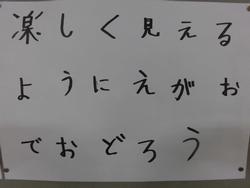 楽しく見える
ようにえがお
でおどろう